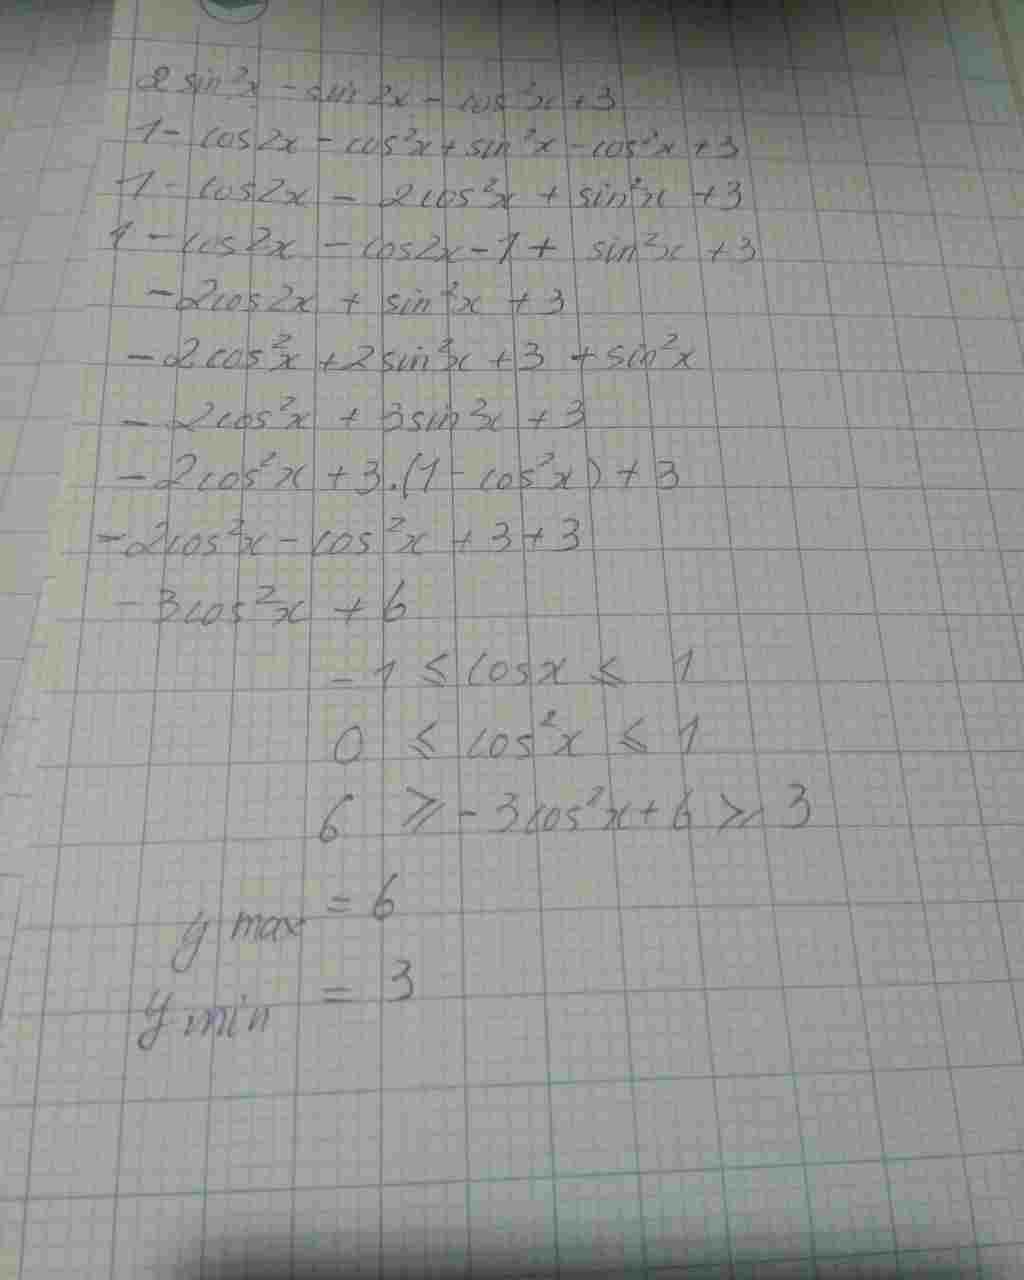 2 sin²x - sin 2x - cos²x + 3
1 - cos2x - cos²x + sin²x - cos²x + 3
1 - cos2x - 2cos²x + sin²x + 3
1 - cos2x - cos2x - 1 + sin²x + 3
- 2cos2x + sin²x + 3
- 2cos²x + 2sin²x + 3 + sin²x
- 2cos²x + 3sin²x + 3
- 2cos²x + 3.(1 - cos²x) + 3
- 2cos²x - cos²x + 3 + 3
- 3cos²x + 6
- 1 ≤ cosx ≤ 1
0 ≤ cos²x ≤ 1
6 ≥ - 3cos²x + 6 ≥ 3
y max = 6
y min = 3